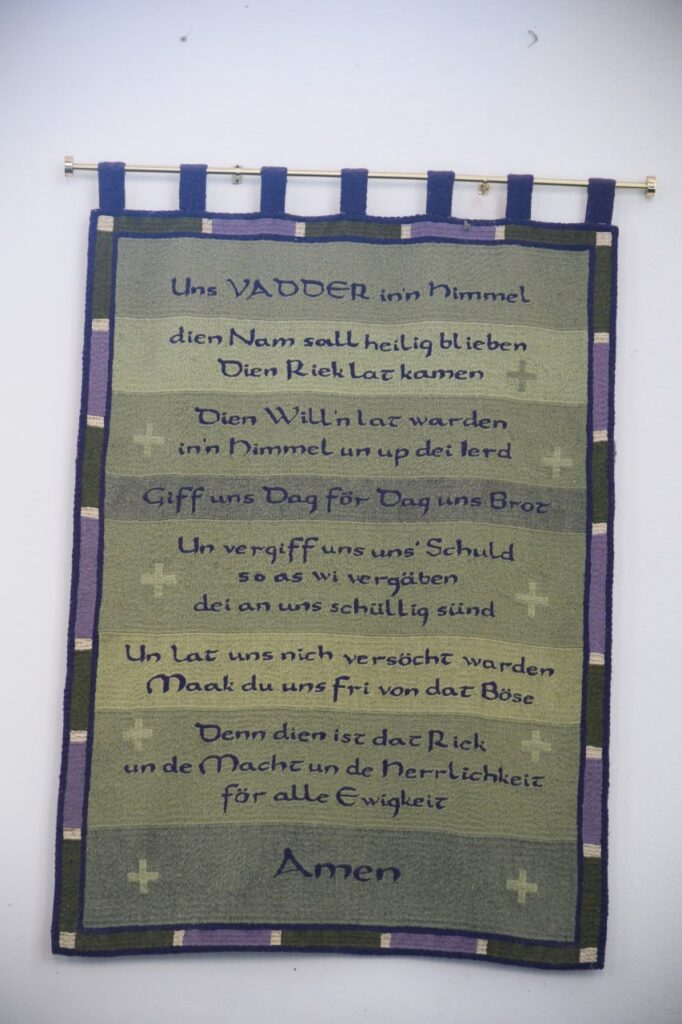 Uns VADDER in'n Himmel
dien Nam sall heilig blieben
Dien Riek lat kamen
Dien Will'n lat warden
in'n Himmel un up dei Ierd
Giff uns Dag för Dag uns Brot
Un vergiff uns uns' Schuld
so as wi vergäben
dei an uns schüllig sünd
Un lat uns nich versöcht warden
Maak du uns fri von dat Böse
Denn dien ist dat Riek
un de Macht un de Herrlichkeit
för alle Ewigkeit
Amen